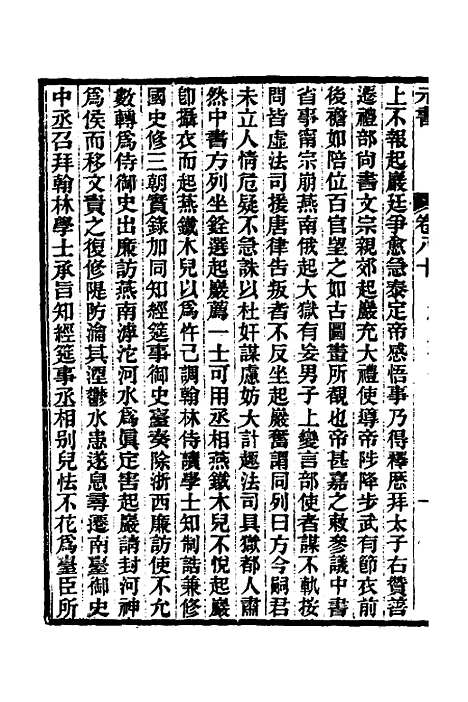 元書 卷八十
上不報起巖廷爭愈急泰定帝感悟事乃得釋歷拜太子右贊善
遷禮部尚書文宗親郊起巖充大禮使導帝陟降步武有節衣前
後襜如陪位百官望之如古圖畫所觀也帝甚嘉之敕參議中書
省事甯宗崩燕南俄起大獄有妄男子上變言部使者謀不軌按
問皆虛法司援唐律告叛者不反坐起巖奮謂同列曰方今嗣君
未立人情危疑不急誅以杜奸謀慮妨大計趣法司具獄都人肅
然中書方列坐銓選起巖薦一士可用丞相燕鐵木兒不悅起巖
卽攝衣而起燕鐵木兒以爲忤己調翰林侍讀學士知制誥兼修
國史修三朝實錄加同知經筵事御史臺奏除浙西廉訪使不允
數轉爲侍御史出廉訪燕南滹沱河水爲眞定害起巖請封河神
爲侯而移文責之復修隄防瀹其湮鬱水患遂息尋遷南臺御史
中丞召拜翰林學士承旨知經筵事丞相別兒怯不花爲臺臣所